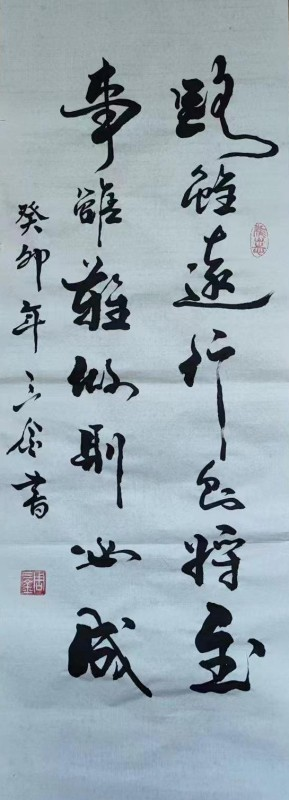 路雖遠行則將至
事雖難做則必成
癸卯年三金書
周三金